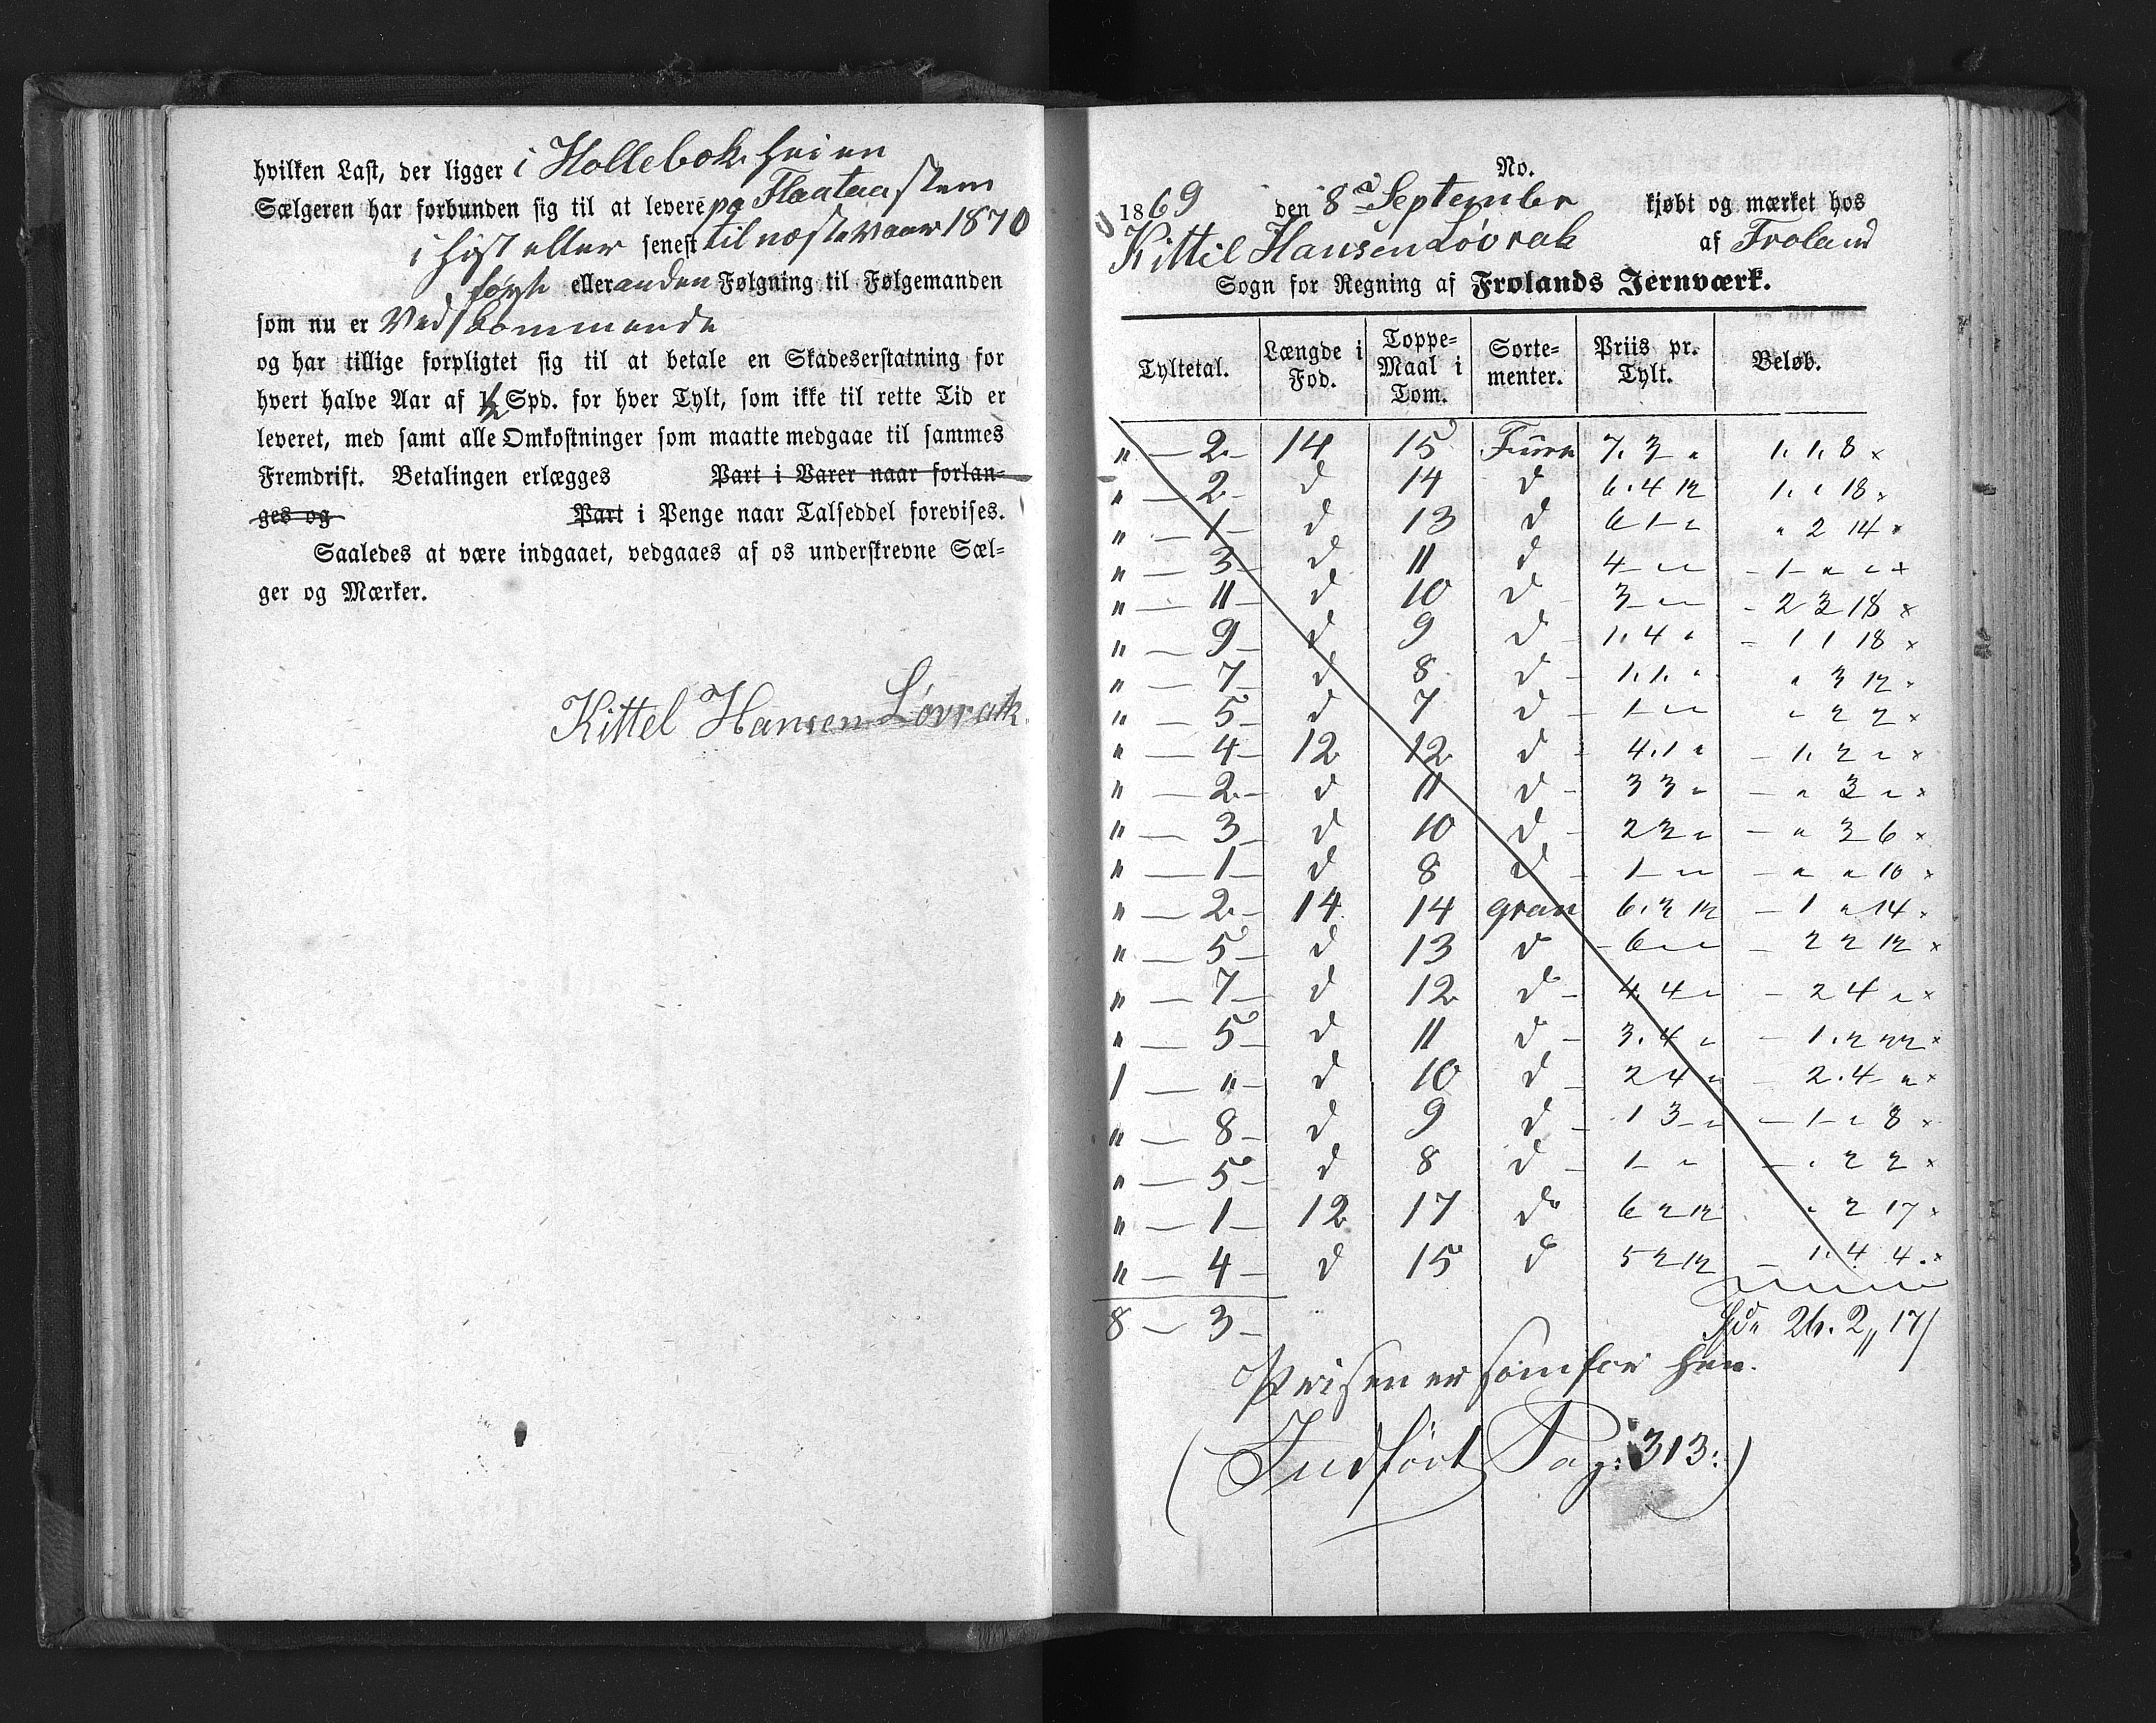 hvilken Last, der ligger i Hollebok heien
Sælgeren har forbunden sig til at levere pa Flaataa stem
i høst eller senest til næste Vaar 1870
først eller anden Følgning til Følgemanden
som nu er Vedkommende
og har tillige forpligtet sig til at betale en Skadeserstatning for
hvert halve Aar af 1/2 Spd. for hver Tylt, som ikke til rette Tid er
leveret, med samt alle Omkostninger som maatte medgaae til sammes
Fremdrift. Betalingen erlægges Part i Varer naar forlan-
ges og Part i Penge naar Talseddel forevises.
Saaledes at være indgaaet, vedgaaes af os underskrevne Sæl-
ger og Mærker.
Kittel Hansen Løvrak
No.
1869 den 8d September kjøbt og mærket hos
Kittil Hansen Løvrak af Froland
Sogn for Regning af Frolands Jernværk.
Tyltetal. Længde i Fod. Toppe-Maal i Tom. Sorte-menter. Priis pr. Tylt. Beløb.
" — 2 — 14 15 Furu 7. 3 " 1. 1. 8 ×
" — 2 — d 14 d 6. 4 12 1. " 18 ×
" — 1 — d 13 d 6 1 - " " 2 14 ×
" — 3 — d 11 d 4 - " " - 1 - " " ×
" — 11 — d 10 d 3 - " " - 2 3 18 ×
" — 9 — d 9 d 1. 4 " - 1 1 18 ×
" — 7 — d 8 d 1. 1. " " 3 12 ×
" — 5 — d 7 d 1 - " " " 2 2 ×
" — 4 — 12 12 d 4. 1 " - 1. 2 " ×
" — 2 — d 11 d 3 3 " - " 3 " ×
" — 3 — d 10 d 2 2 " - " 3 6 ×
" — 1 — d 8 d 1 - " " - " " 10 ×
" — 2 — 14 14 gran 6. 2 12 - 1 " 14 ×
" — 5 — d 13 d 6 " " - 2 2 12 ×
" — 7 — d 12 d 4. 4 " - 2 4 " ×
" — 5 — d 11 d 3. 4 " - 1. 2 22 ×
1 — " — d 10 d 2 4 " 2. 4 " ×
" — 8 — d 9 d 1 3 - " - 1 - " 8 ×
" — 5 — d 8 d 1 - " - " 2 2 ×
" — 1 — 12 17 d 6 2 12 " 2 17 ×
" — 4 — d 15 d 5 2 12 - 1. 4 4. ×
8 — 3 — Spd. 26. 2 " 17/
Prisen er som før her.
(Indført Pag: 313:)